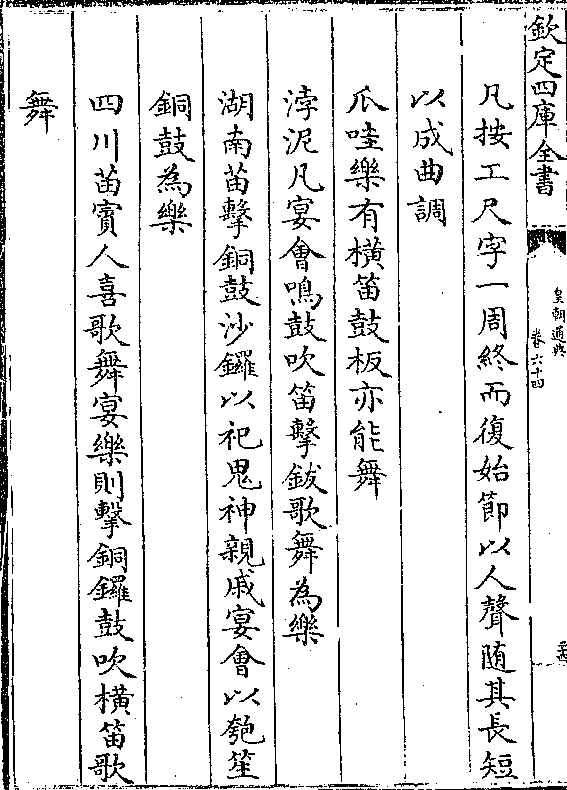 欽定四庫全書
皇朝通典
卷六十四
凡按工尺字一周終而復始節以人聲随其長短
以成曲調
爪哇樂有橫笛鼓板亦能舞
浡泥凡宴會鳴鼓吹笛擊鈸歌舞為樂
湖南苗擊銅鼓沙鑼以祀鬼神親戚宴會以匏笙
銅鼓為樂
四川苗賨人喜歌舞宴樂則擊銅鑼鼓吹橫笛歌
舞